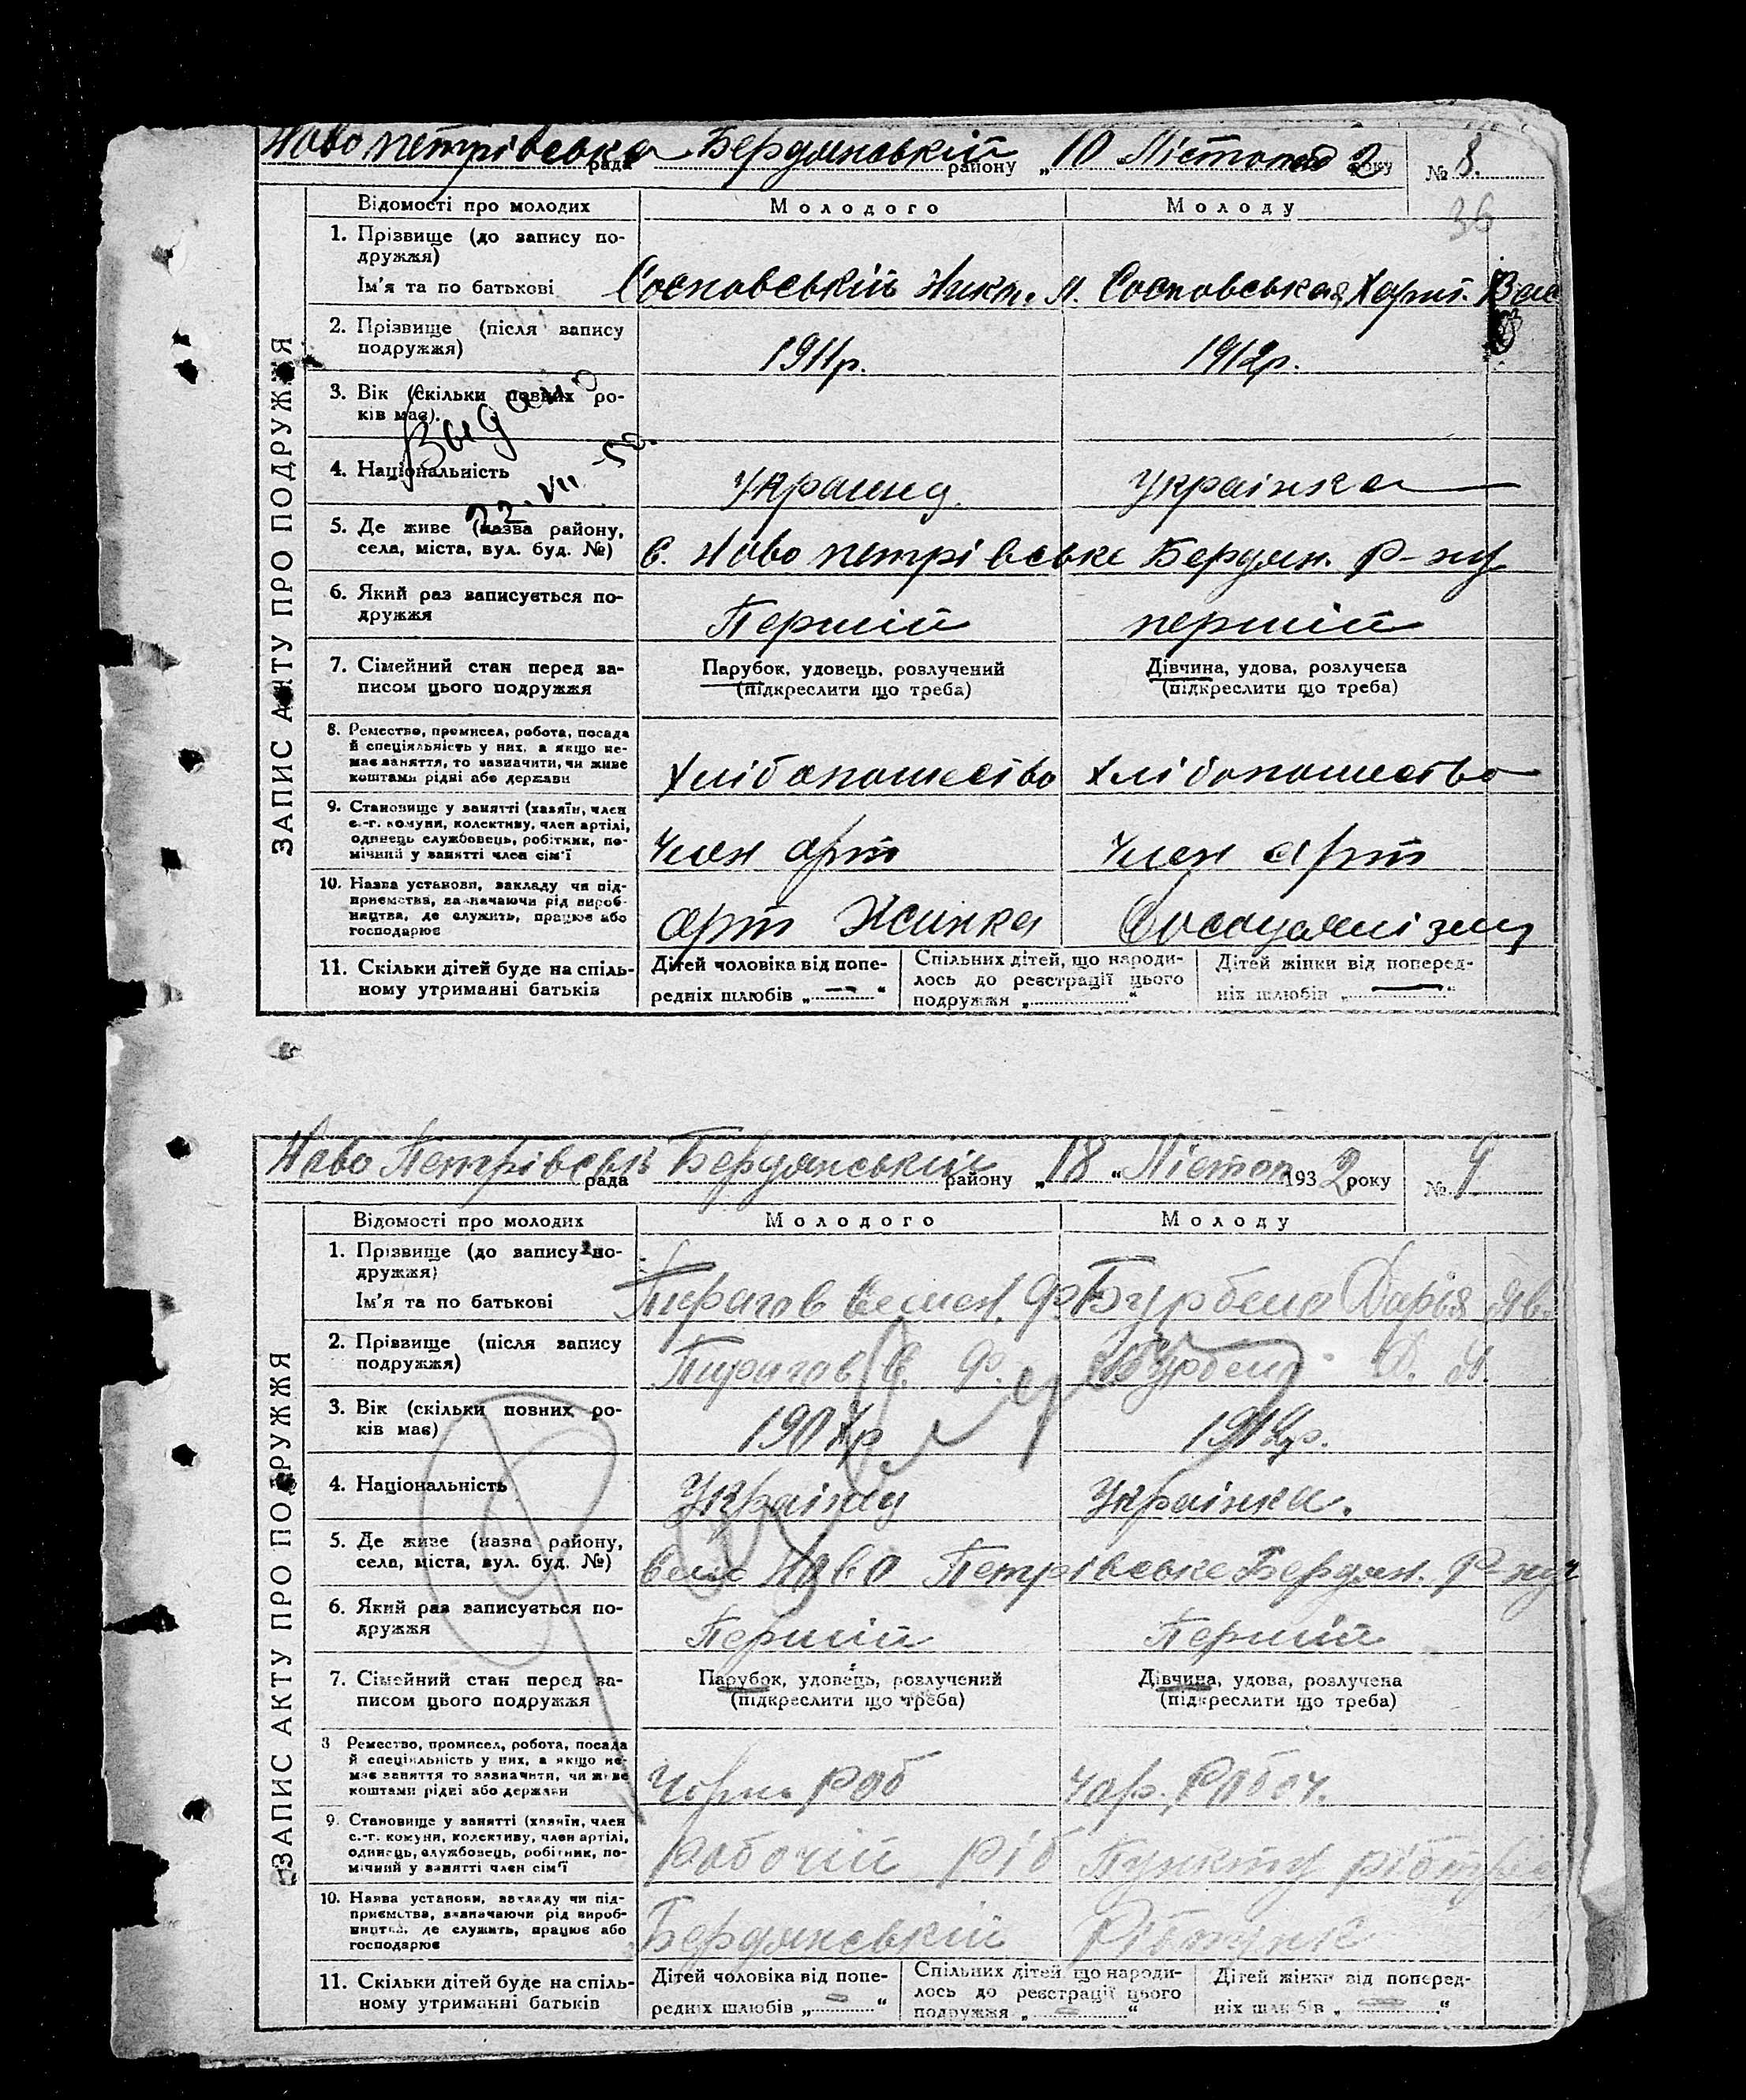 Ново петрівська рада Бердянський району „10 Лістопад 2 року № 8.
36
ЗАПИС АКТУ ПРО ПОДРУЖЖЯ
Відомості про молодих Молодого Молоду
1. Прізвище (до запису по-
дружжя)
Ім'я та по батькові Сосновський Никт. Л. Сосновська Харит. Вас
2. Прізвище (після запису
подружжя) 1911р. 1912р.
3. Вік (скільки повних ро-
ків має).
Видано
22. VII
4. Національність Украинц. Українка
5. Де живе (назва району,
села, міста, вул. буд. №) с. Ново петрівське Бердян. Р-ну
6. Який раз записується по-
дружжя Першій першій
7. Сімейний стан перед за-
писом цього подружжя
Парубок, удовець, розлучений
(підкреслити що треба)
Дівчина, удова, розлучена
(підкреслити що треба)
8. Ремество, промисел, робота, посада
й спеціяльність у них, а якщо не-
має заняття, то зазначити, чи живе
коштами рідні або держави
Хлібопашество Хлібопашество
9. Становище у занятті (хазяїн, член
с.-г. комуни, колективу, член артілі,
одинець службовець, робітник, по-
мічний у занятті член сім'ї
Член арт Член арт
10. Назва установи, закладу чи під-
приємства, зазначаючи рід вироб-
ництва, де служить, працює або
господарює
арт
11. Скільки дітей буде на спіль-
ному утриманні батьків
Дітей чоловіка від попе-
редніх шлюбів „—“
Спільних дітей, що народи-
лось до реєстрації цього
подружжя „ “
Дітей жінки від поперед-
ніх шлюбів „—“
Ново Петрівськ рада Бердянський району „18“ Лістоп 1932 року № 9
ЗАПИС АКТУ ПРО ПОДРУЖЖЯ
Відомості про молодих Молодого Молоду
1. Прізвище (до запису по-
дружжя)
Ім'я та по батькові Пирагов Семен. Ф. Бурбело Дарья Як.
2. Прізвище (після запису
подружжя) Пирагов С. Ф. Д. Я.
3. Вік (скільки повних ро-
ків має) 1907р 1912р.
4. Національність Українц Українка.
5. Де живе (назва району,
села, міста, вул. буд. №) село Ново Петрівське Бердян. Р-ну
6. Який раз записується по-
дружжя Першій Першій
7. Сімейний стан перед за-
писом цього подружжя
Парубок, удовець, розлучений
(підкреслити що треба)
Дівчина, удова, розлучена
(підкреслити що треба)
8 Ремество, промисел, робота, посада
й спеціяльність у них, а якщо не-
має заняття то зазначити, чи живе
коштами рідні або держави
Чорн. Роб Чор. Робоч.
9. Становище у занятті (хазяїн, член
с.-г. комуни, колективу, член артілі,
одинець, службовець, робітник, по-
мічний у занятті член сім'ї
Рабочій Ріб Пункту
10. Назва установи, закладу чи під-
приємства, зазначаючи рід вироб-
ництва, де служить, працює або
господарює
Бердянській
11. Скільки дітей буде на спіль-
ному утриманні батьків
Дітей чоловіка від попе-
редніх шлюбів „—“
Спільних дітей, що народи-
лось до реєстрації цього
подружжя „—“
Дітей жінки від поперед-
ніх шлюбів „—“